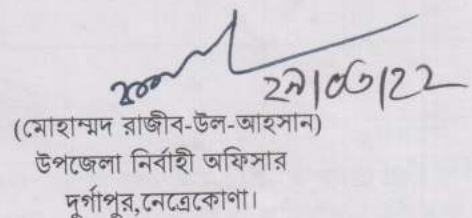 (মোহাম্মদ রাজীব-উল-আহসান)
উপজেলা নির্বাহী অফিসার
দুর্গাপুর,নেত্রকোণা।